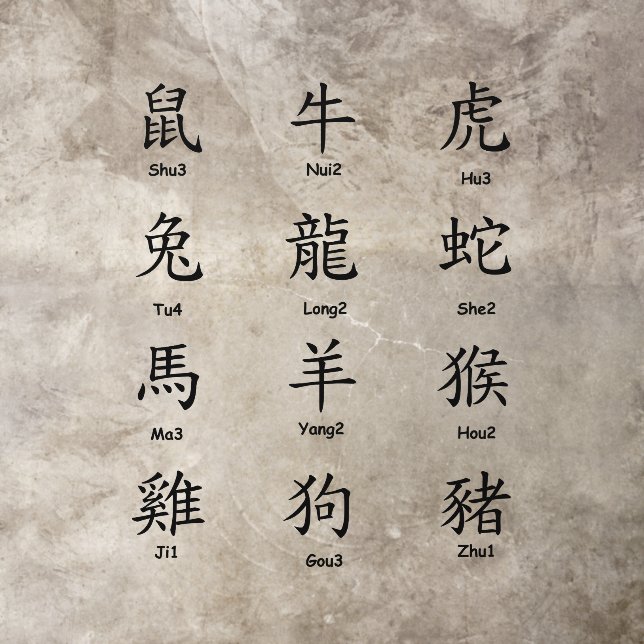 鼠 牛 虎
Shu3 Nui2 Hu3
兔 龍 蛇
Tu4 Long2 She2
馬 羊 猴
Ma3 Yang2 Hou2
雞 狗 豬
Ji1 Gou3 Zhu1